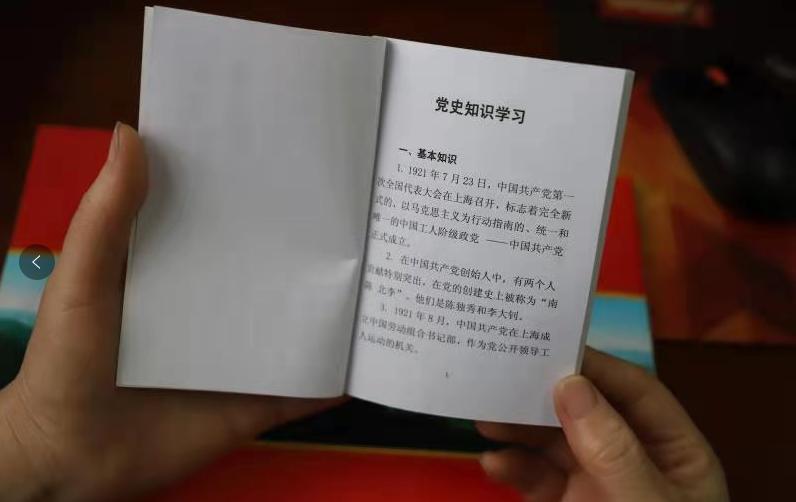 党史知识学习
一、基本知识
1. 1921年7月23日，中国共产党第一
次全国代表大会在上海召开，标志着完全新
式的、以马克思主义为行动指南的、统一和
唯一的中国工人阶级政党 ——中国共产党
正式成立。
2. 在中国共产党创始人中，有两个人
贡献特别突出，在党的创建史上被称为“南
陈 北李”。他们是陈独秀和李大钊。
3. 1921年8月，中国共产党在上海成
立中国劳动组合书记部，作为党公开领导工
人运动的机关。
1